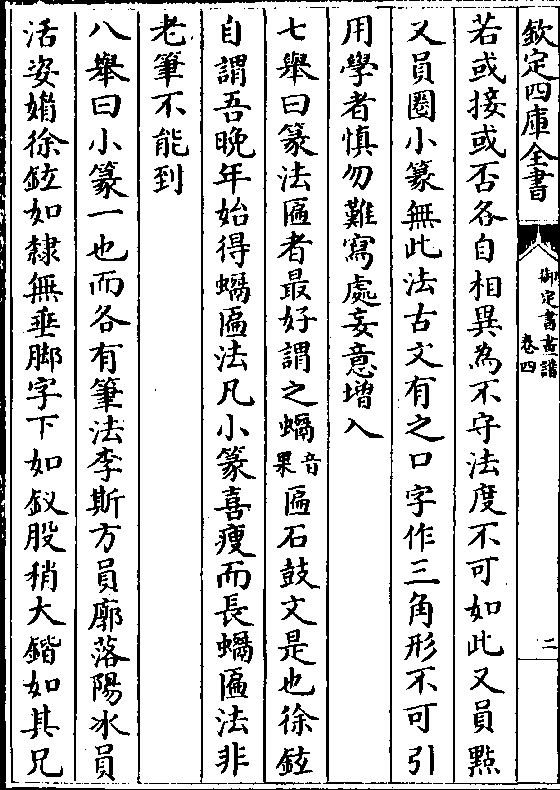 欽定四庫全書
御定書畫譜
卷四
二
若或接或否各自相異為不守法度不可如此又員㸃
又員圈小篆無此法古文有之口字作三角形不可引
用學者慎勿難寫處妄意增入
七舉曰篆法匾者最好謂之螎音果匾石鼓文是也徐鉉
自謂吾晚年始得螎匾法凡小篆喜瘦而長螎匾法非
老筆不能到
八舉曰小篆一也而各有筆法李斯方員廓落陽冰員
活姿媚徐鉉如隸無垂脚字下如釵股稍大鍇如其兄